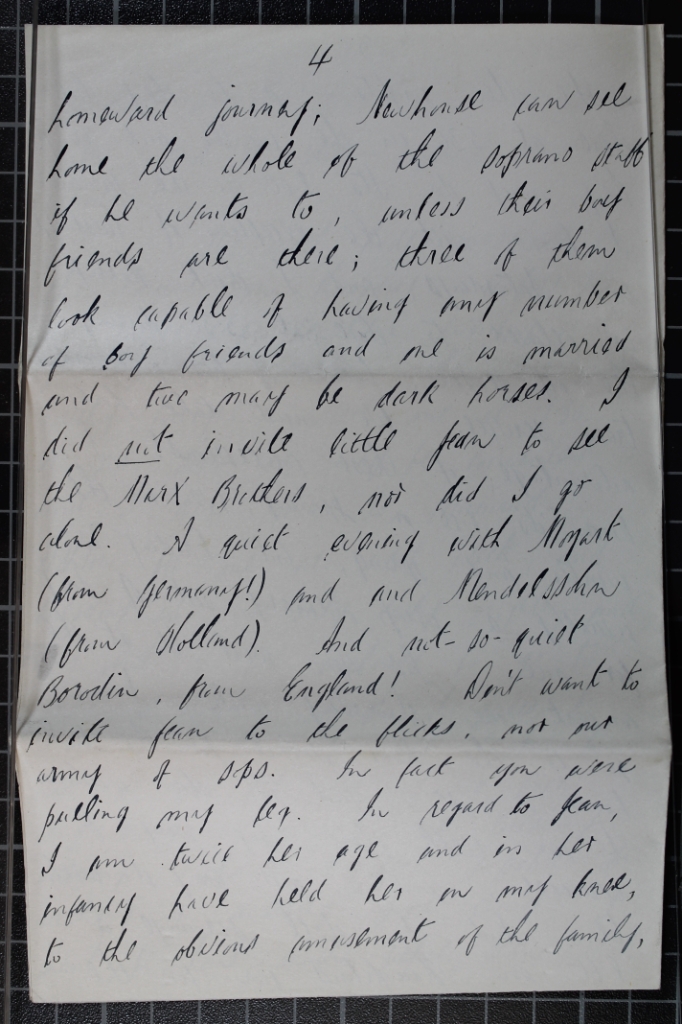 4
homeward journey; Newhouse can see
home the whole of the soprano staff
if he wants to, unless their boy
friends are there; three of them
look capable of having any number
of boy friends and one is married
and two may be dark horses. I
did not invite little Jean to see
the Marx Brothers, nor did I go
alone. A quiet evening with Mozart
(from Germany!) and and Mendelssohn
(from Holland). And not-so-quiet
Borodin, from England! Don't want to
invite Jean to the flicks, nor our
army of sops. In fact you were
pulling my leg. In regard to Jean,
I am twice her age and in her
infancy have held her on my knee,
to the obvious amusement of the family,